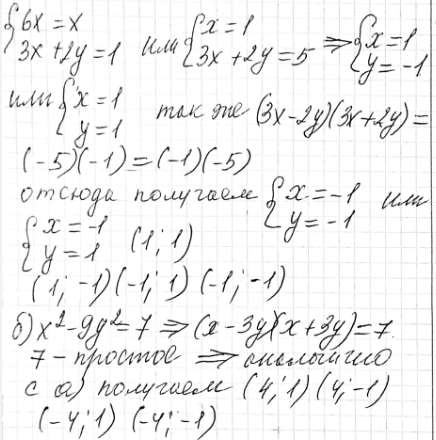 {6x = x
3x + 2y = 1 или {x = 1
3x + 2y = 5 ⇒ {x = 1
y = -1
или {x = 1
y = 1 так же (3x - 2y)(3x + 2y) =
(-5)(-1) = (-1)(-5)
отсюда получаем {x = -1
y = -1 или
{x = -1
y = 1 (1; 1)
(1; -1) (-1; 1) (-1; -1)
б) x² - 9y² = 7 ⇒ (x - 3y)(x + 3y) = 7
7 - простое ⇒ аналогично
с а) получаем (4; 1) (4; -1)
(-4; 1) (-4; -1)